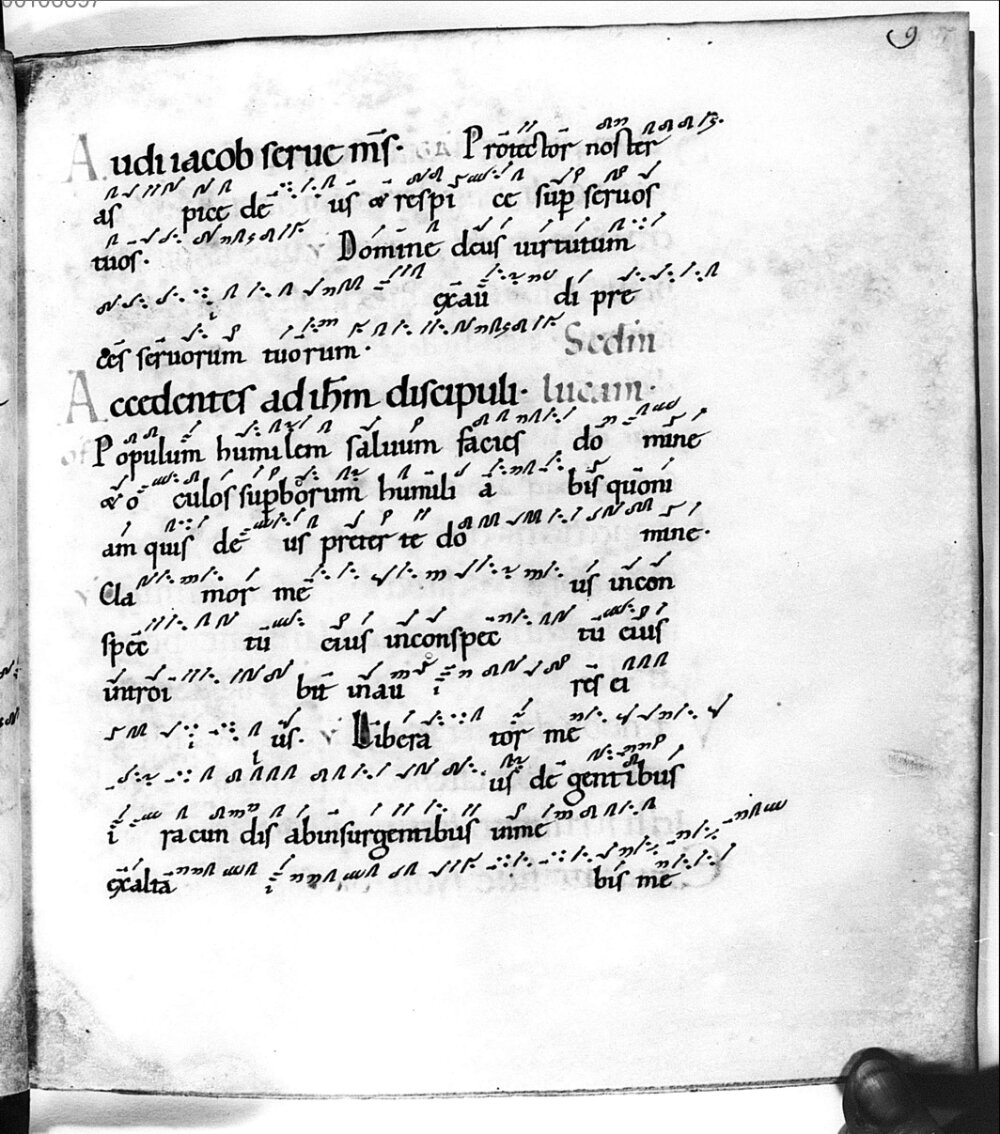 9
Audi iacob serue m̄s· GR Protector noster
as pice de us & respi ce sup seruos
tuos· V Domine deus uirtutum
exau di pre
ces seruorum tuorum· Sedm
Accedentes ad ihm discipuli· lucam·
of Populum humilem saluum facies do mine
& o culos supborum humili a bis quoni
am quis de us preter te do mine·
V Cla mor me us incon
spec tu eius inconspec tu eius
introi bit inau i res ei
us· V Libera tor me
us de gentibus
i racun dis abinsurgentibus inme
exalta i bis me